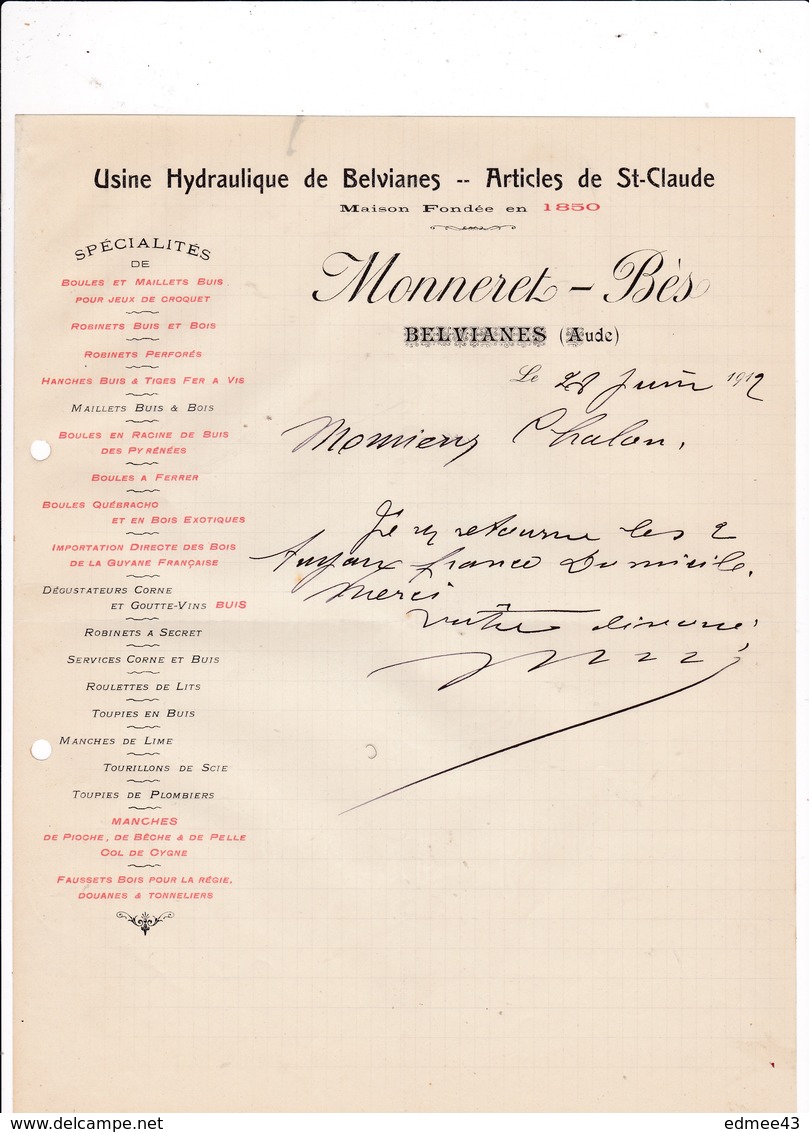 Usine Hydraulique de Belvianes -- Articles de St-Claude
Maison Fondée en 1850
Monneret - Bès
BELVIANES (Aude)
Le 28 Juin 1912
SPÉCIALITÉS
DE
BOULES ET MAILLETS BUIS
POUR JEUX DE CROQUET
ROBINETS BUIS ET BOIS
ROBINETS PERFORÉS
HANCHES BUIS & TIGES FER A VIS
MAILLETS BUIS & BOIS
BOULES EN RACINE DE BUIS
DES PYRÉNÉES
BOULES A FERRER
BOULES QUÉBRACHO
ET EN BOIS EXOTIQUES
IMPORTATION DIRECTE DES BOIS
DE LA GUYANE FRANÇAISE
DÉGUSTATEURS CORNE
ET GOUTTE-VINS BUIS
ROBINETS A SECRET
SERVICES CORNE ET BUIS
ROULETTES DE LITS
TOUPIES EN BUIS
MANCHES DE LIME
TOURILLONS DE SCIE
TOUPIES DE PLOMBIERS
MANCHES
DE PIOCHE, DE BÊCHE & DE PELLE
COL DE CYGNE
FAUSSETS BOIS POUR LA RÉGIE,
DOUANES & TONNELIERS
Monsieur Chalon,
Je retourne les 2
tuyaux franco Domicile.
Merci
votre
edmee43